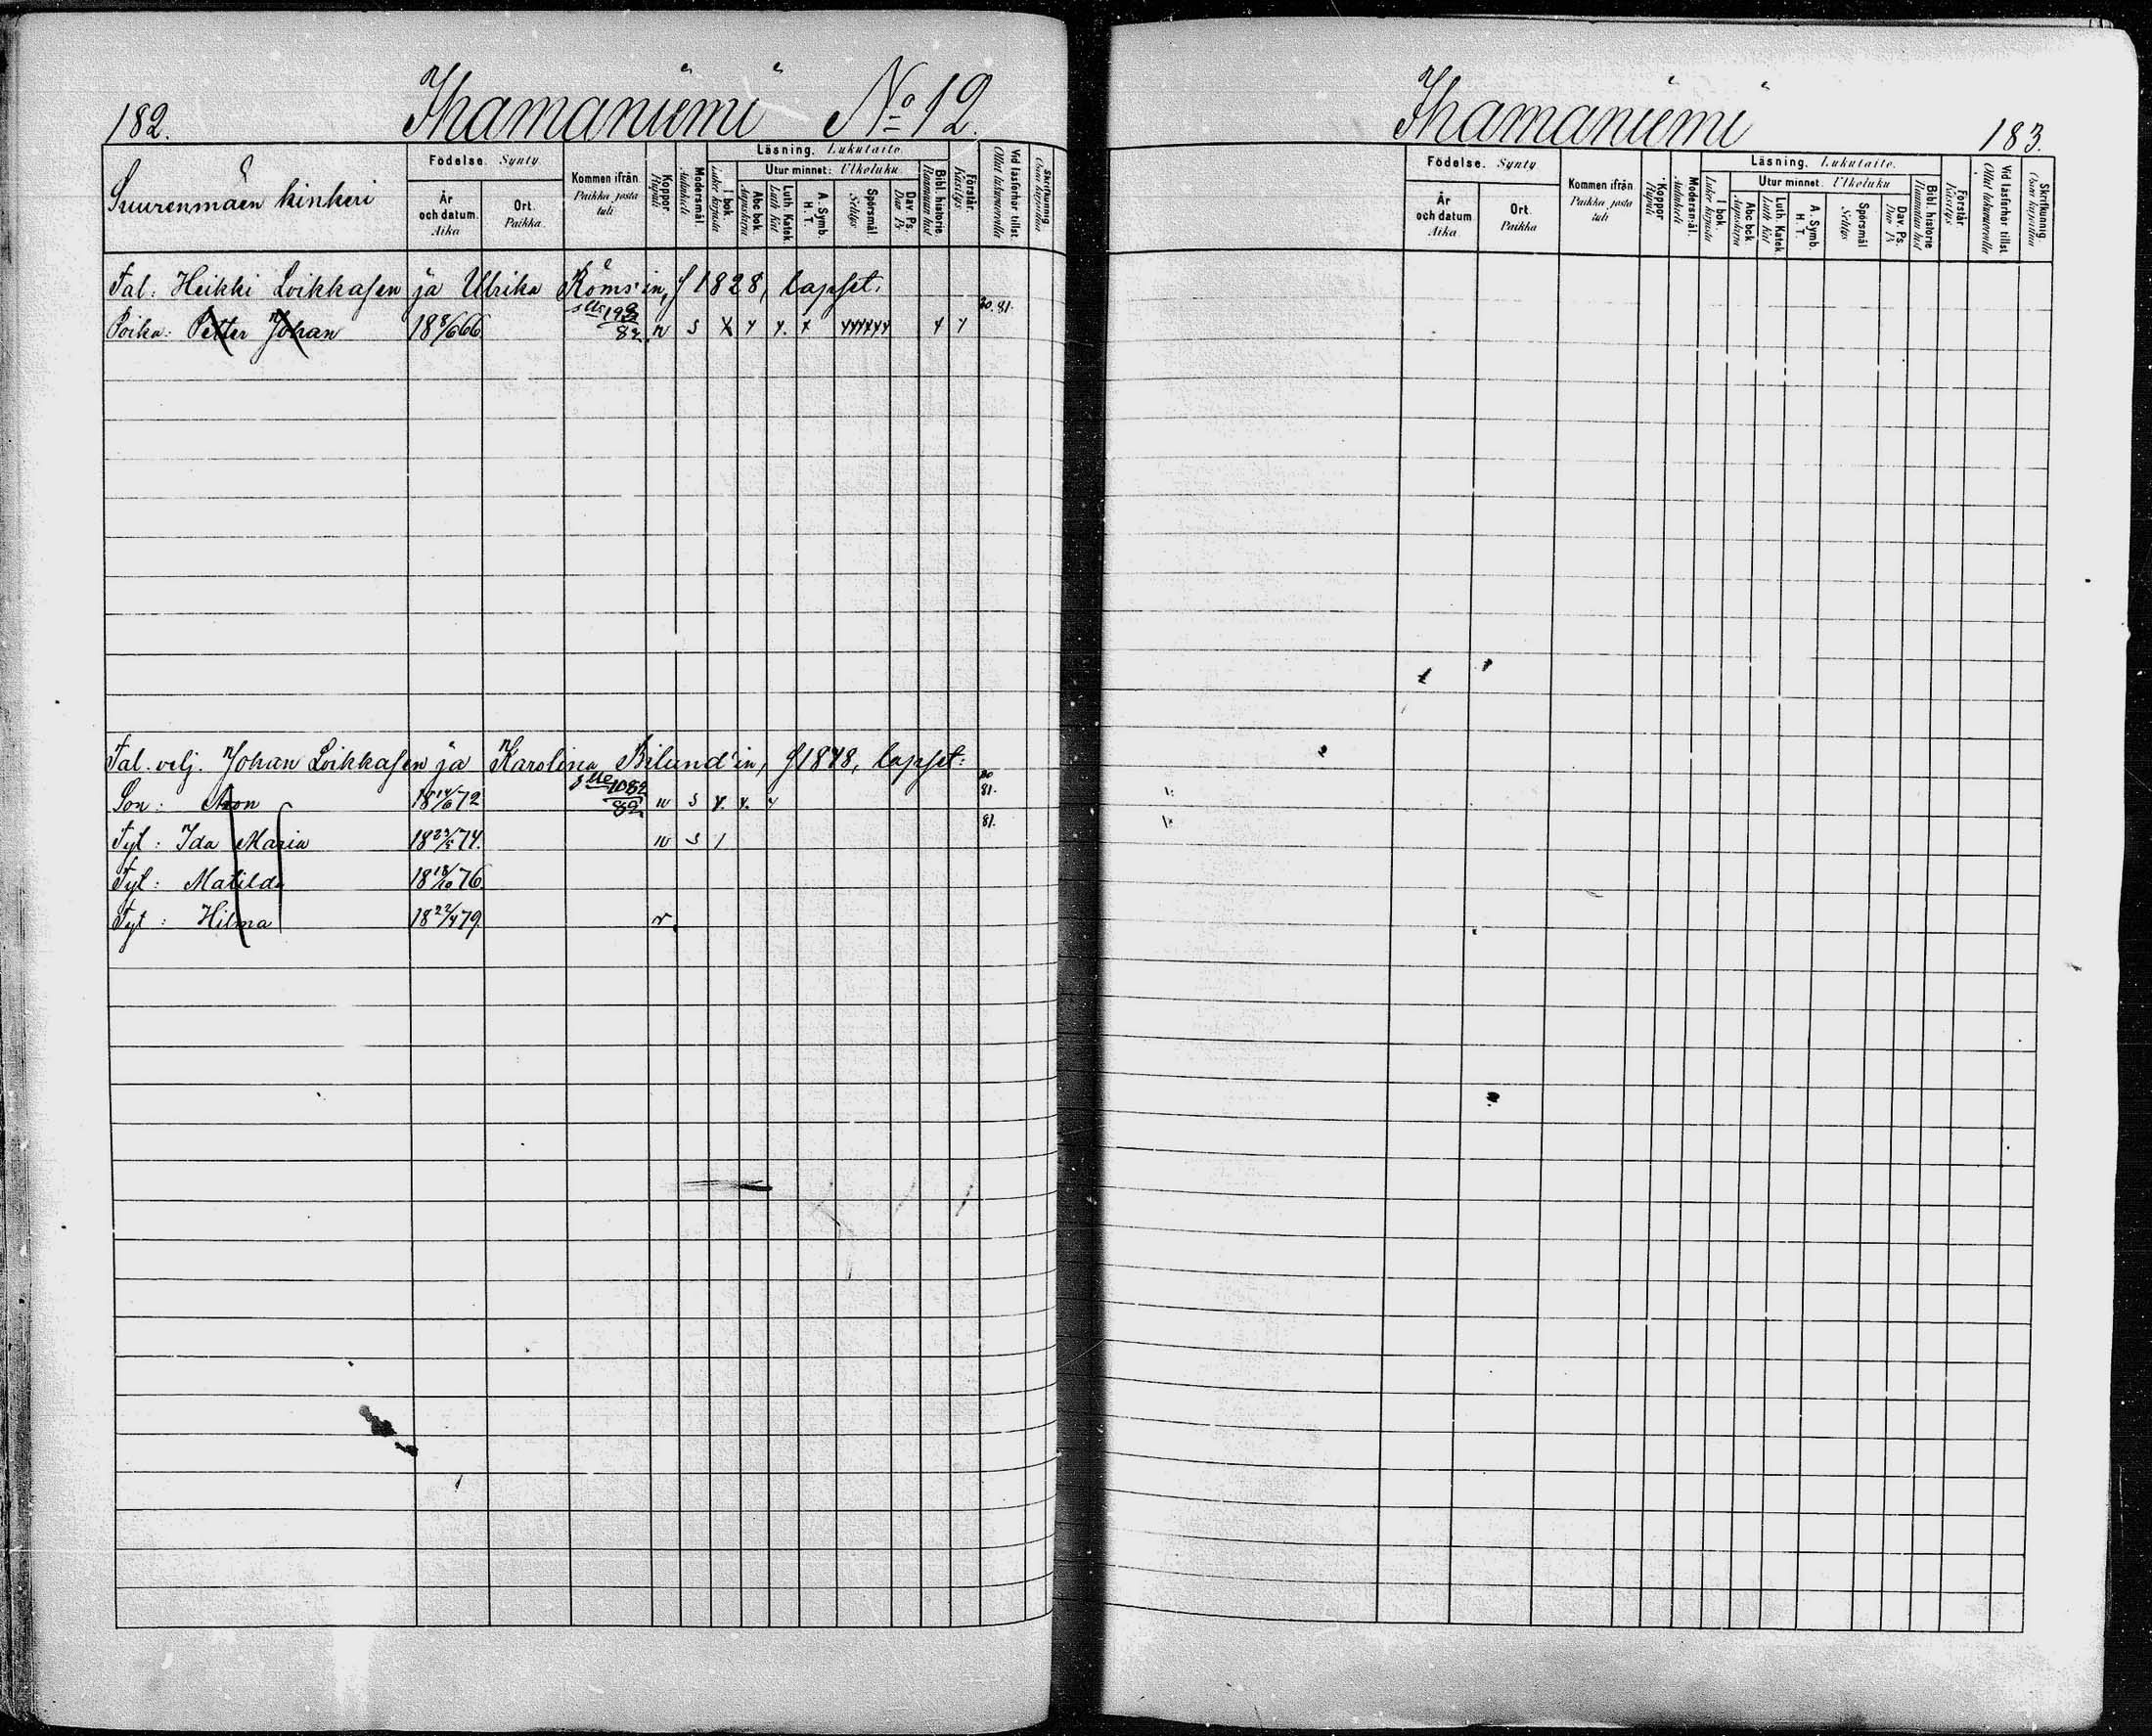 182.
Ihamaniemi No 12.
Suurenmäen kinkeri
Födelse. Synty
År och datum. Aika
Ort. Paikka.
Kommen ifrån Paikka josta tuli
Koppor Rupuli
Modersmål. Äidinkieli
Läsning. Lukutaito.
I bok. Lukee kirjasta
Utur minnet: Ulkoluku
Abc bok Aapiskirja
Luth. Katek. Luth Kat
A. Symb. H. T.
Spörsmål. Selitys
Dav. Ps. Daw Ps
Bibl. historie Raamatun hist
Förstår. Käsitys
Vid läsförhör tillst. Ollut lukuvuorolla
Skrifkunnig Osaa kirjoittaa
Tal: Heikki Loikkasen ja Ulrika Röms'in, f 1828, lapset.
Poika: Petter Johan 18 8/6 66 siv. 198/82 w s 80.81.
Tal. velj. Johan Loikkasen ja Karolina Bilund'in, f 1848, lapset:
Son: Aron 18 14/6 72 1082/82 w s 80 81.
Tyt: Ida Maria 18 23/5 74. w s / 81.
Tyt: Matilda 18 18/10 76.
Tyt: Hilma 18 22/4 79. r
Ihamaniemi
183.
Födelse. Synty
År och datum Aika
Ort. Paikka
Kommen ifrån Paikka josta tuli
Koppor Rupuli
Modersmål. Äidinkieli
Läsning. Lukutaito.
I bok. Lukee kirjasta
Utur minnet. Ulkoluku
Abc bok Aapiskirja
Luth. Katek. Luth Kat
A. Symb. H. T.
Spörsmål Selitys
Dav. Ps. Daw Ps
Bibl. historie Raamatun hist
Förstår Käsitys
Vid läsförhör tillst. Ollut lukuvuorolla
Skrifkunnig Osaa kirjoittaa